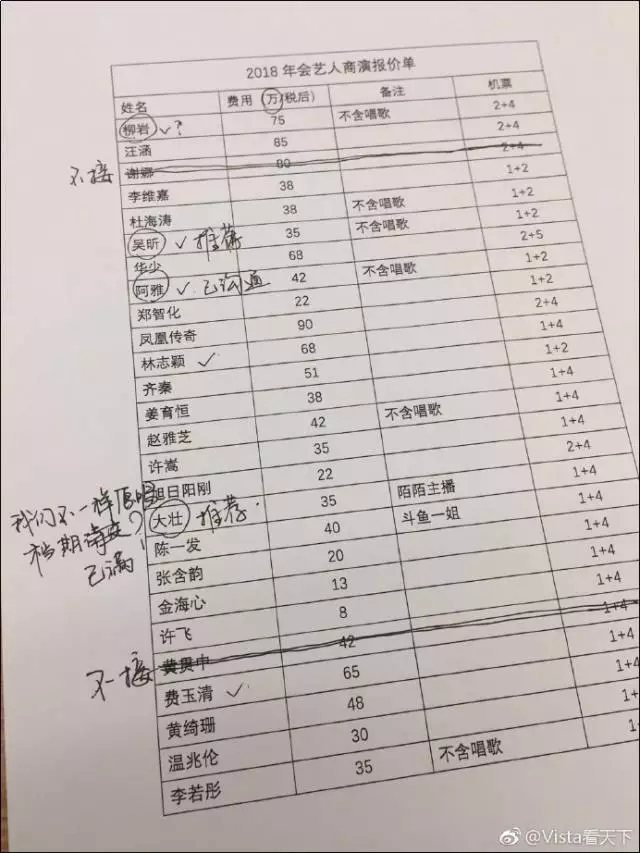 2018 年会艺人商演报价单
姓名 费用 万(税后) 备注 机票
柳岩 ✓? 75 不含唱歌 2+4
汪涵 85 2+4
不接 谢娜 80 2+4
李维嘉 38 1+2
杜海涛 38 不含唱歌 1+2
吴昕 ✓ 推荐 35 不含唱歌 1+2
华少 68 2+5
阿雅 ✓ 已沟通 42 不含唱歌 1+2
郑智化 22 1+2
凤凰传奇 90 2+4
林志颖 ✓ 68 1+4
齐秦 51 1+2
姜育恒 38 1+4
赵雅芝 42 不含唱歌 1+4
许嵩 35 1+4
旭日阳刚 22 2+4
我们不一样原唱
大壮 推荐. 35 陌陌主播 1+4
档期
?
已满!
陈一发 40 斗鱼一姐 1+4
张含韵 20 1+4
金海心 13 1+4
许飞 8 1+4
不接 黄贯中 42 1+4
费玉清 ✓ 65 1+4
黄绮珊 48 1+4
温兆伦 30 1+
李若彤 35 不含唱歌 1+
@Vista看天下